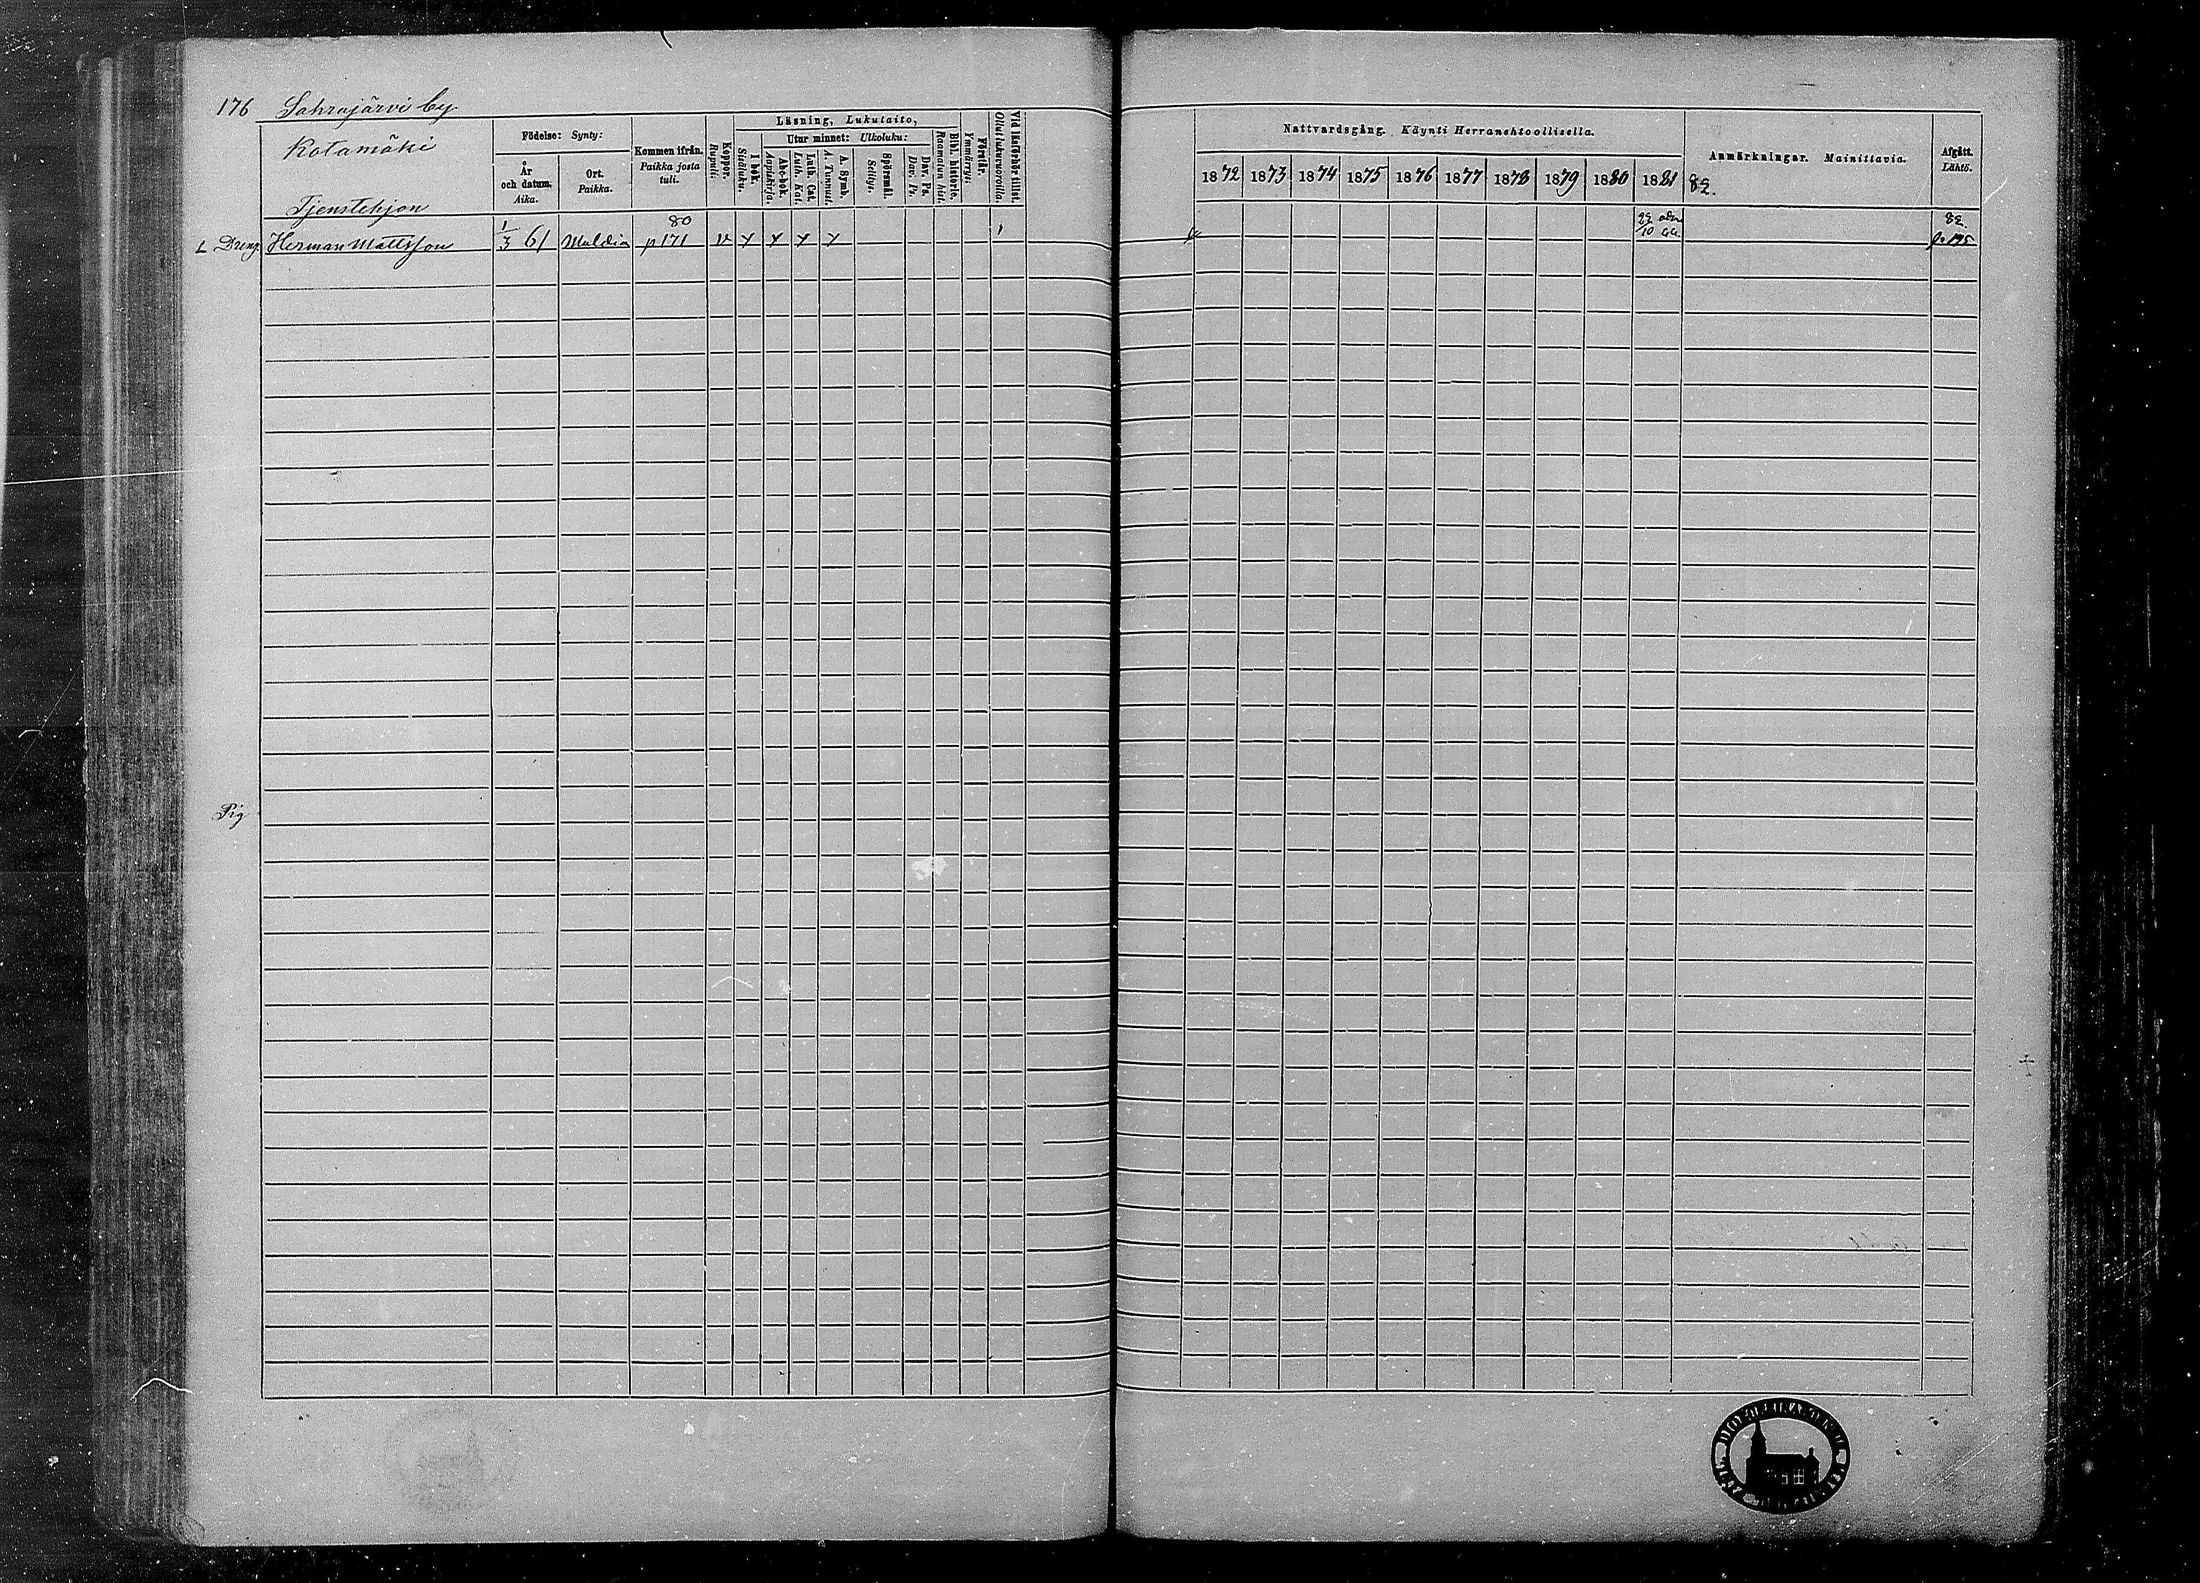 176 Sahrajärvi by
Kotamäki
Tjenstehjon
Födelse: Synty:
År och datum. Aika.
Ort. Paikka.
Kommen ifrån. Paikka josta tuli.
Koppor. Rupuli.
Läsning, Lukutaito,
I bok. Sisäluku.
Utur minnet: Ulkoluku:
Abc-bok. Aapiskirja.
Luth. Cat. Luth. Kat.
A. Symb. A. Tunnust.
Spörsmål. Selitys.
Dav. Ps. Dav. Ps.
Bibl. historie. Raamatun hist.
Förstår. Ymmärrys:
Vid läsförhör tillst. Ollut lukuvuoroilla.
Nattvardsgång. Käynti Herranehtoollisella.
1872 1873 1874 1875 1876 1877 1878 1879 1880 1881 82.
Anmärkningar. Mainittavia.
Afgått. Lähtö.
Dreng. Herman Mattsson 1/3 61 Muldia 80 p 171 v
82. p. 195
Pig